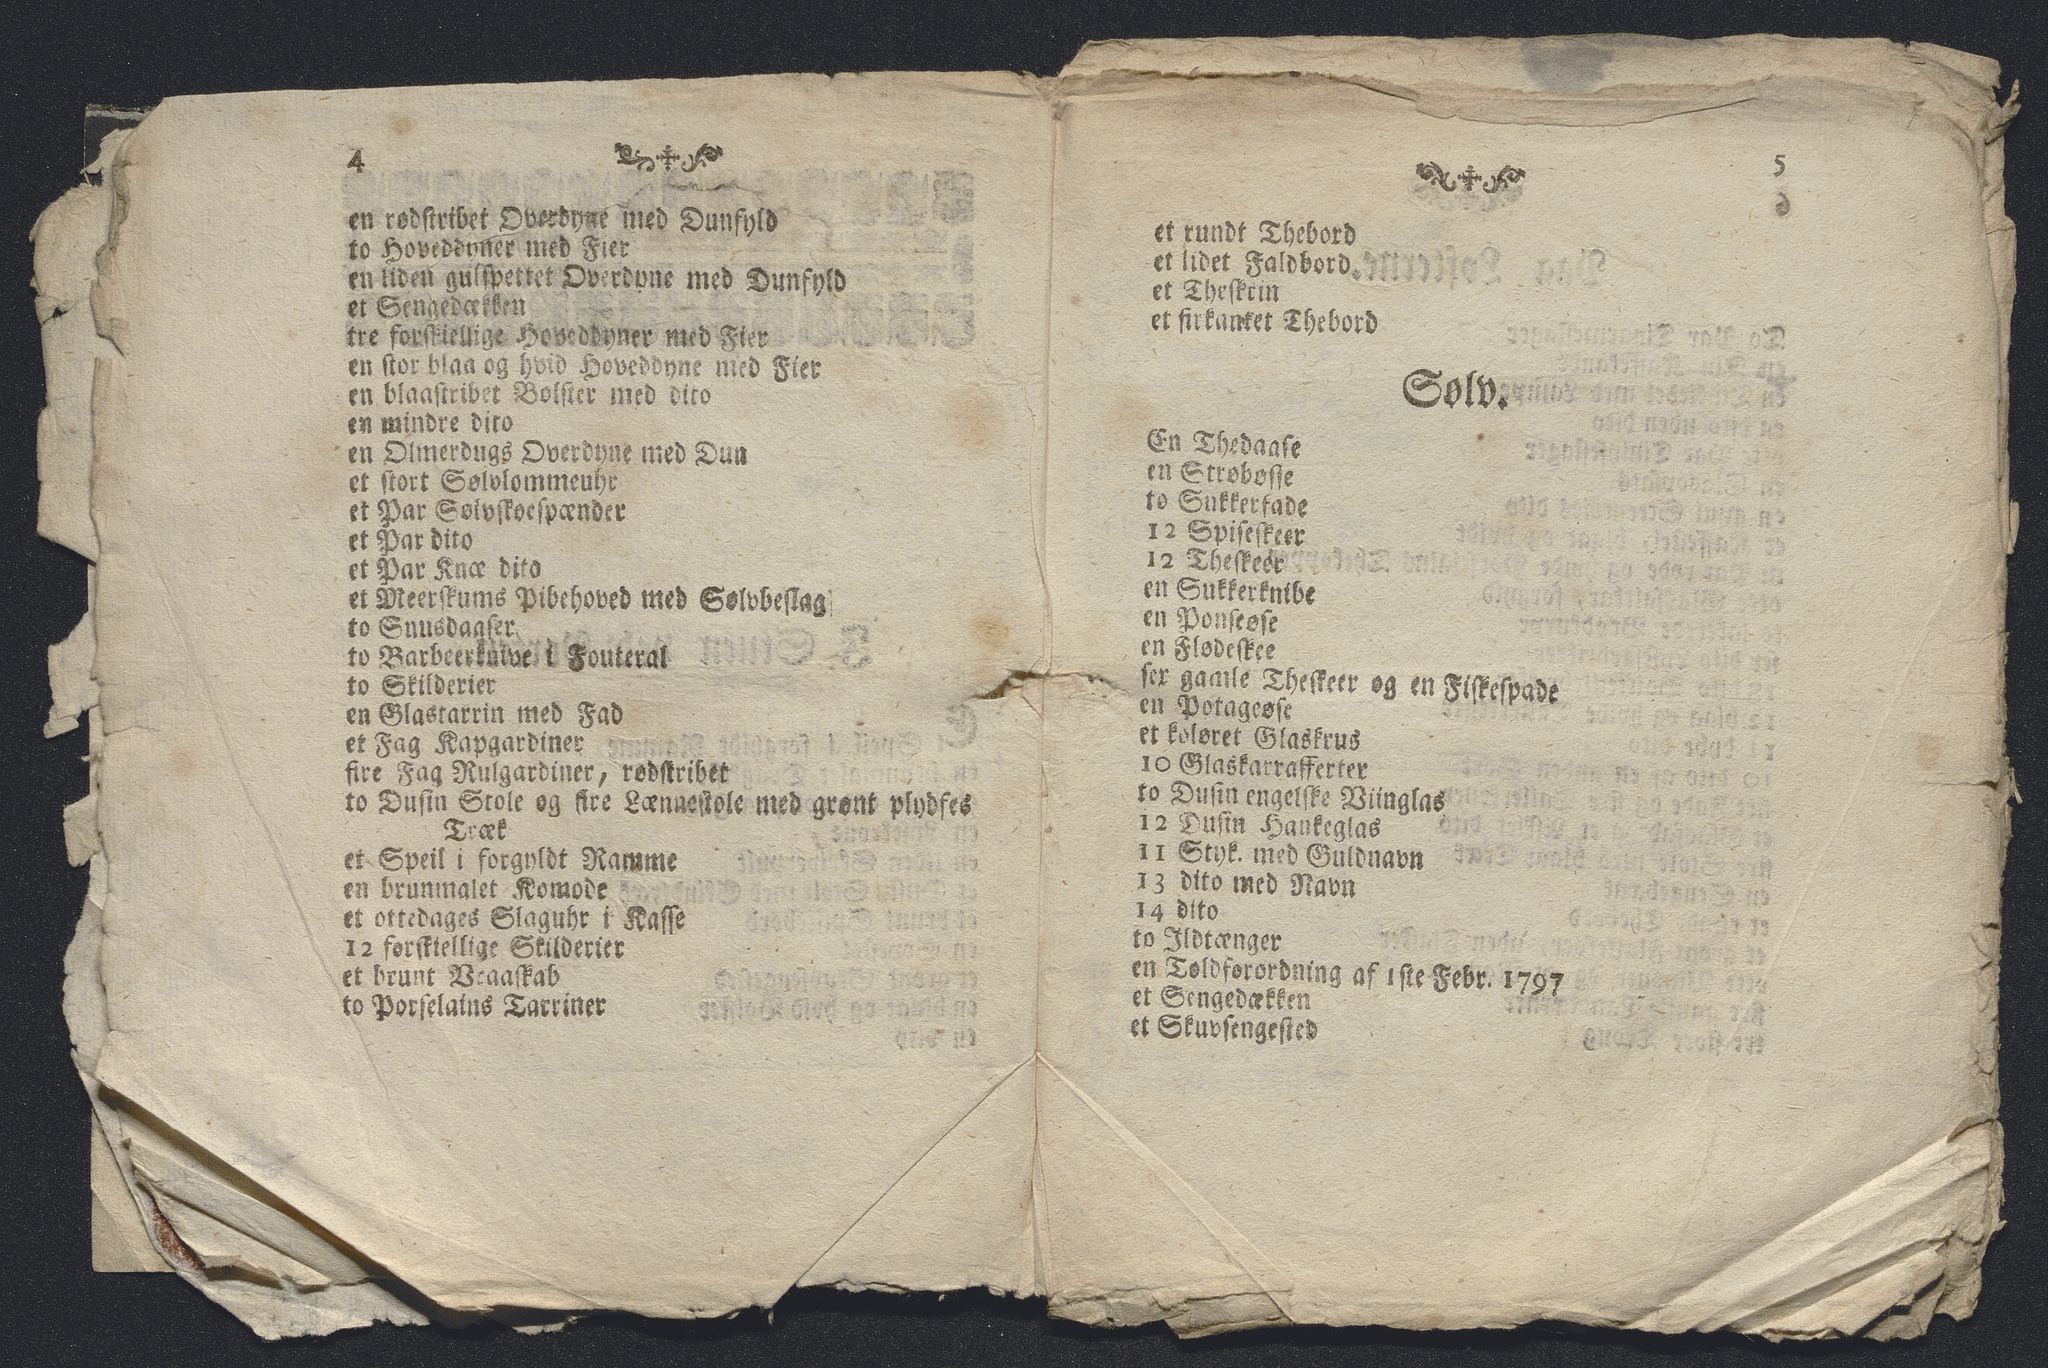 4
en rødstribet Overdyne med Dunfyld
to Hoveddyner med Fier
en liden gulspettet Overdyne med Dunfyld
et Sengedækken
tre forskiellige Hoveddyner med Fier
en stor blaa og hvid Hoveddyne med Fier
en blaastribet Bolster med dito
en mindre dito
en Olmerdugs Overdyne med Dun
et stort Sølvlommeuhr
et Par Sølvskoespænder
et Par dito
et Par Knæ dito
et Meerskums Pibehoved med Sølvbeslag
to Snusdaaser
to Barbeerknive i Fouteral
to Skilderier
en Glastarrin med Fad
et Fag Kapgardiner
fire Fag Rulgardiner, rødstribet
to Dusin Stole og fire Lænnestole med grønt plydses
Træk
et Speil i forgyldt Ramme
en brunmalet Komode
et ottedages Slaguhr i Kasse
12 forskiellige Skilderier
et brunt Vraaskab
to Porselains Tarriner
5
et rundt Thebord
et lidet Faldbord
et Theskrin
et firkanket Thebord
Sølv.
En Thedaase
en Strøbøsse
to Sukkerfade
12 Spiseskeer
12 Theskeer
en Sukkerknibe
en Ponseøse
en Flødeskee
sex gamle Theskeer og en Fiskespade
en Potageøse
et koløret Glaskrus
10 Glaskarrafferter
to Dusin engelske Viinglas
12 Dusin Hankeglas
11 Styk. med Guldnavn
13 dito med Navn
14 dito
to Ildtænger
en Toldforordning af 1ste Febr. 1797
et Sengedækken
et Skuvsengested